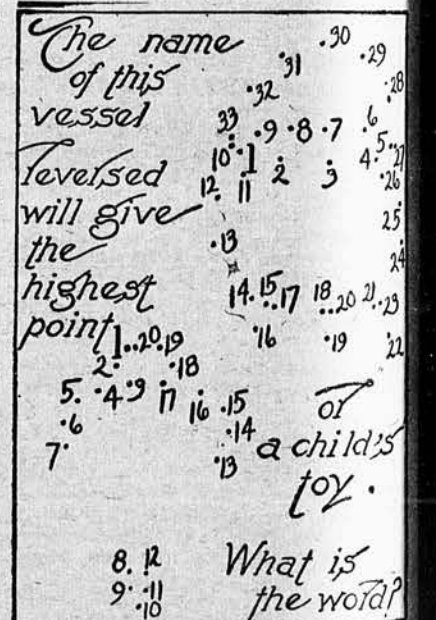 The name
of this
vessel
reversed
will give
the
highest
point
30
31 29
32 28
33 9 8 7 6
10 1 2 3 4 5 27
12 11 26
25
13 24
14 15 17 18 20 21 23
16 19 22
1 20 19
2 18
5 4 9 17 16 15
6 14
7 13
8 12
9 11
10
or
a child's
toy.
What is
the word?